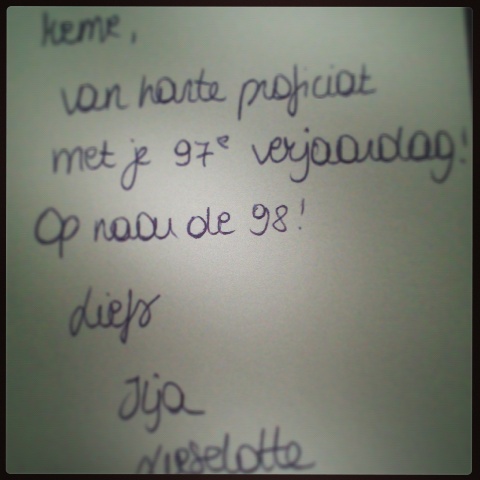 keme,
van harte proficiat
met je 97e verjaardag!
Op naar de 98!
Liefs
Ilja
Lieselotte